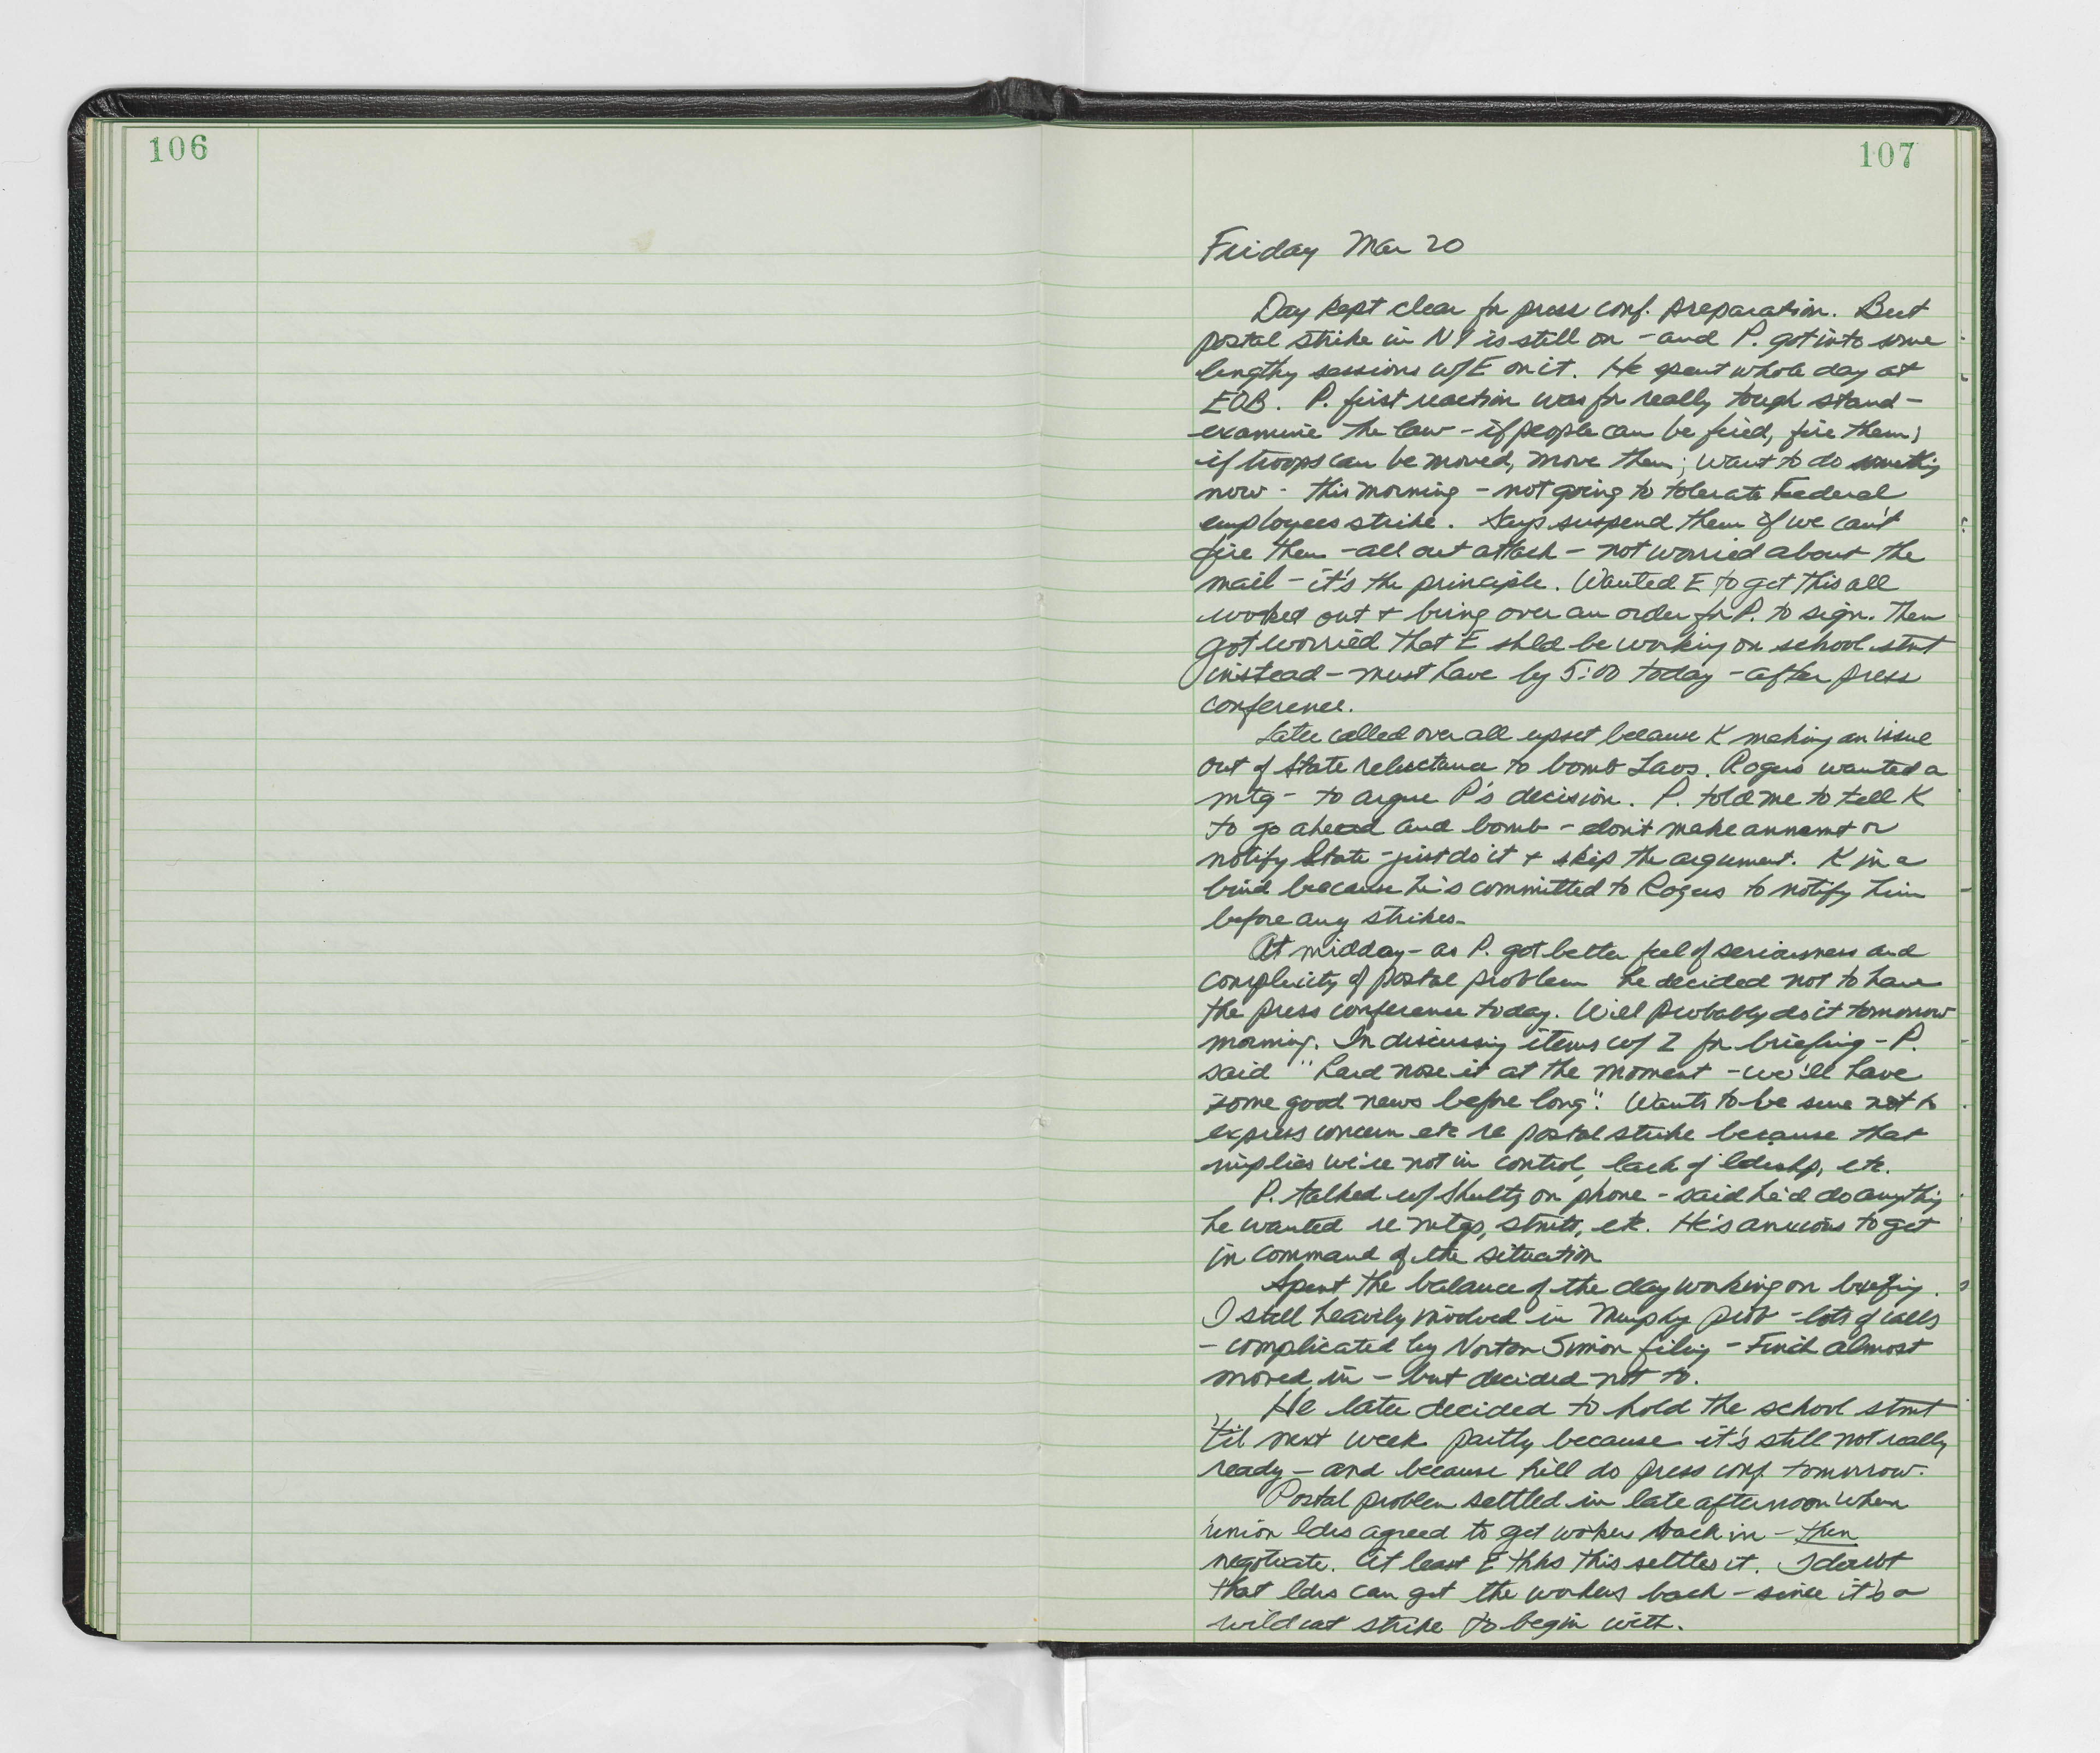 106
107
Friday Mar 20
Day kept clear for press conf. preparation. But
postal strike in NY is still on - and P. got into some
lengthy sessions w/E on it. He spent whole day at
EOB. P. first reaction was for really tough stand -
examine the law - if people can be fired, fire them;
if troops can be moved, move them; want to do something
now - this morning - not going to tolerate Federal
employees strike. Says suspend them if we can't
fire them - all out attack - not worried about the
mail - it's the principle. Wanted E to get this all
worked out + bring over an order for P. to sign. Then
got worried that E shld be working on school stmt
instead - must have by 5:00 today - after press
conference.
Later called over all upset because K making an issue
out of State reluctance to bomb Laos. Rogers wanted a
mtg - to argue P's decision. P. told me to tell K
to go ahead and bomb - don't make annmt or
notify State - just do it + skip the argument. K in a
bind because he's committed to Rogers to notify him
before any strikes -
At midday - as P. got better feel of seriousness and
complexity of postal problem he decided not to have
the press conference today. Will probably do it tomorrow
morning. In discussing items w/ Z for briefing - P.
said "hard nose it at the moment - we'll have
some good news before long". Wants to be sure not to
express concern etc re postal strike because that
implies we're not in control, lack of ldrshp, etc.
P. talked w/ Shultz on phone - said he'd do anything
he wanted re mtgs, stmts, etc. He's anxious to get
in command of the situation
Spent the balance of the day working on briefing.
I still heavily involved in Murphy prob - lots of calls
- complicated by Norton Simon filing - Finch almost
moved in - but decided not to.
He later decided to hold the school stmt
'til next week partly because it's still not really
ready - and because he'll do press conf. tomorrow.
Postal problem settled in late afternoon when
union ldrs agreed to get workers back in - then
negotiate. At least E thks this settles it. I doubt
that ldrs can get the workers back - since it's a
wildcat strike to begin with.